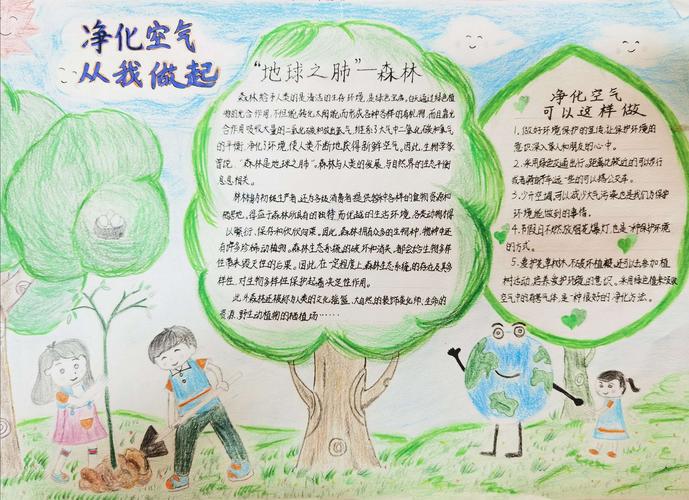 净化空气
从我做起
"地球之肺"—森林
森林给予人类的是清洁的生存环境,是绿色宝库,白天通过绿色植
物的光合作用,不但能转化太阳能而形成各种各样的有机物,而且靠光
合作用吸收大量的二氧化碳和放出氧气,维系了大气中二氧化碳和氧气
的平衡,净化了环境,使人类不断地获得新鲜空气。因此,生物学家
曾说,"森林是地球之肺"。森林与人类的发展,与自然界的生态平衡
息息相关。
森林为初级生产者,还为各级消费者提供各种各样的食物资源和
栖居地,得益于森林所具有的独特而优越的生态环境,各类动物得
以繁衍、保存和伏伏向荣。因此,森林拥有众多的生物种,物种中还
有许多珍稀动植物。森林生态系统的破坏和消失,都会给生物多样
性带来毁灭性的后果。因此,在一定程度上,森林生态系统的存在及其多
样性,对生物多样性保护起着决定性作用。
此外森林还被称为人类的文化摇篮、大自然的装饰美化师、生命的
资源、野生动植物的栖植场……
净化空气
可以这样做
1.做好环境保护的宣传,让环境保护的
意识深入家人和朋友的心中。
2.采用绿色交通出行,距离比较近的可以步行
或者骑自行车,远一些的可以搭公交车。
3.少开空调,可以减少大气污染也是我们为保护
环境能做到的事情。
4.节假日不燃放烟花爆竹,也是一种保护环境
的方式。
5.要护花草树木,不破坏植被,还可以去参加植
树活动,培养爱护环境的意识。采用绿色植来吸收
空气中的有害气体,是一种很好的净化方法。